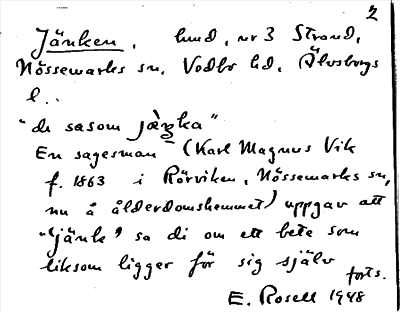 2
Jänken, hmd, nr 3 Strand,
Nössemarks sn, Vedbo hd, Älvsborgs
l..
"de sasom jàŋka"
En sagesman (Karl Magnus Vik
f. 1863 i Rörviken, Nössemarks sn,
nu å ålderdomshemmet) uppgav att
"jänk" sa di om ett bete som
liksom ligger för sig själv
forts.
E. Rosell 1948